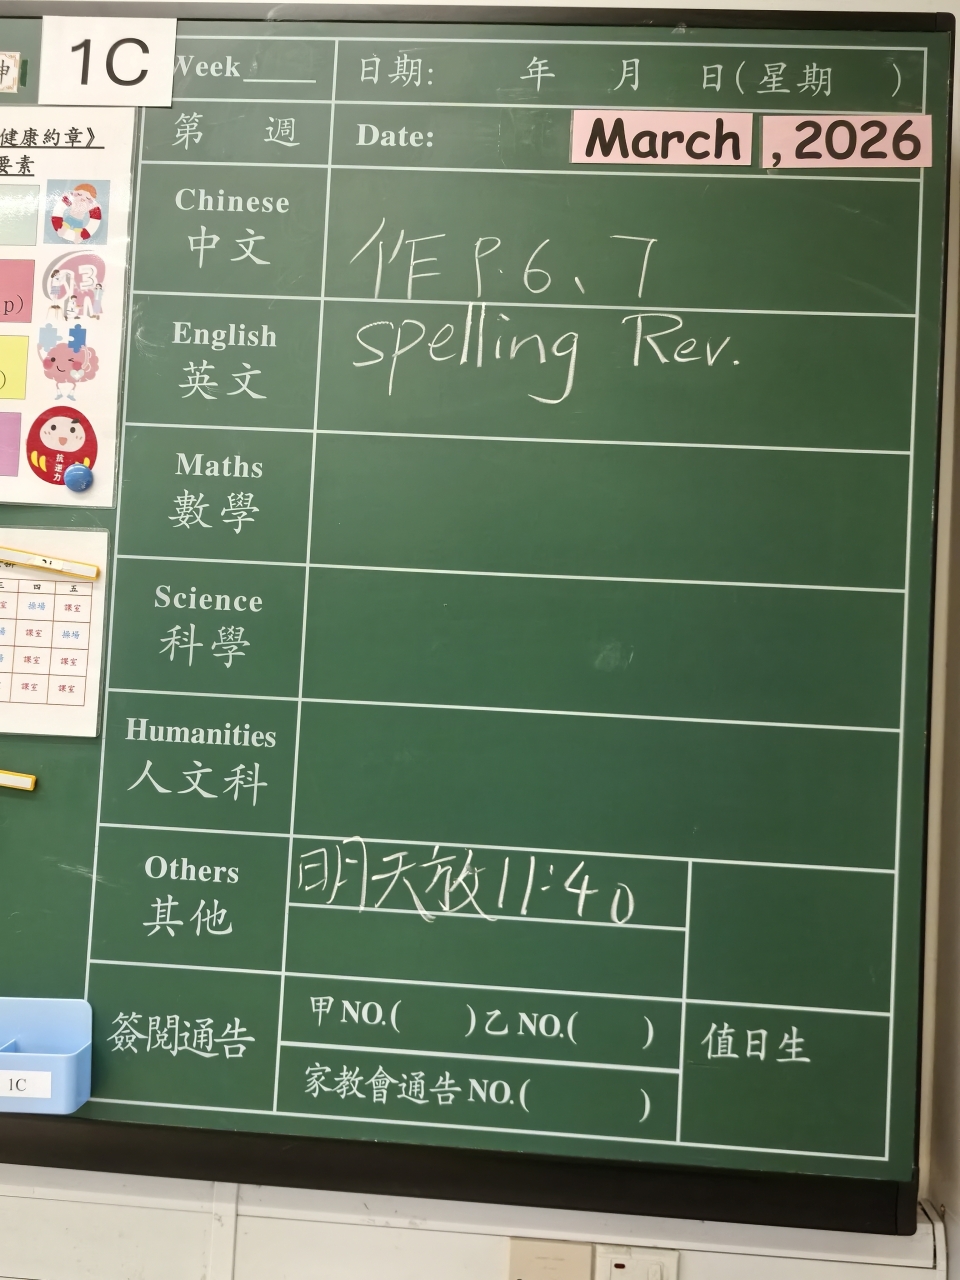 1C
Week
日期: 年 月 日(星期 )
第 週
Date: March , 2026
健康約章》
要素
Chinese
中文
作 P.6、7
English
英文
Spelling Rev.
p)
)
抗逆力
Maths
數學
Science
科學
三 四 五
室 操場 課室
場 課室 操場
場 課室 課室
課室 課室
Humanities
人文科
Others
其他
明天放11:40
簽閱通告
甲 NO.( )乙 NO.( )
家教會通告 NO.( )
值日生
1C